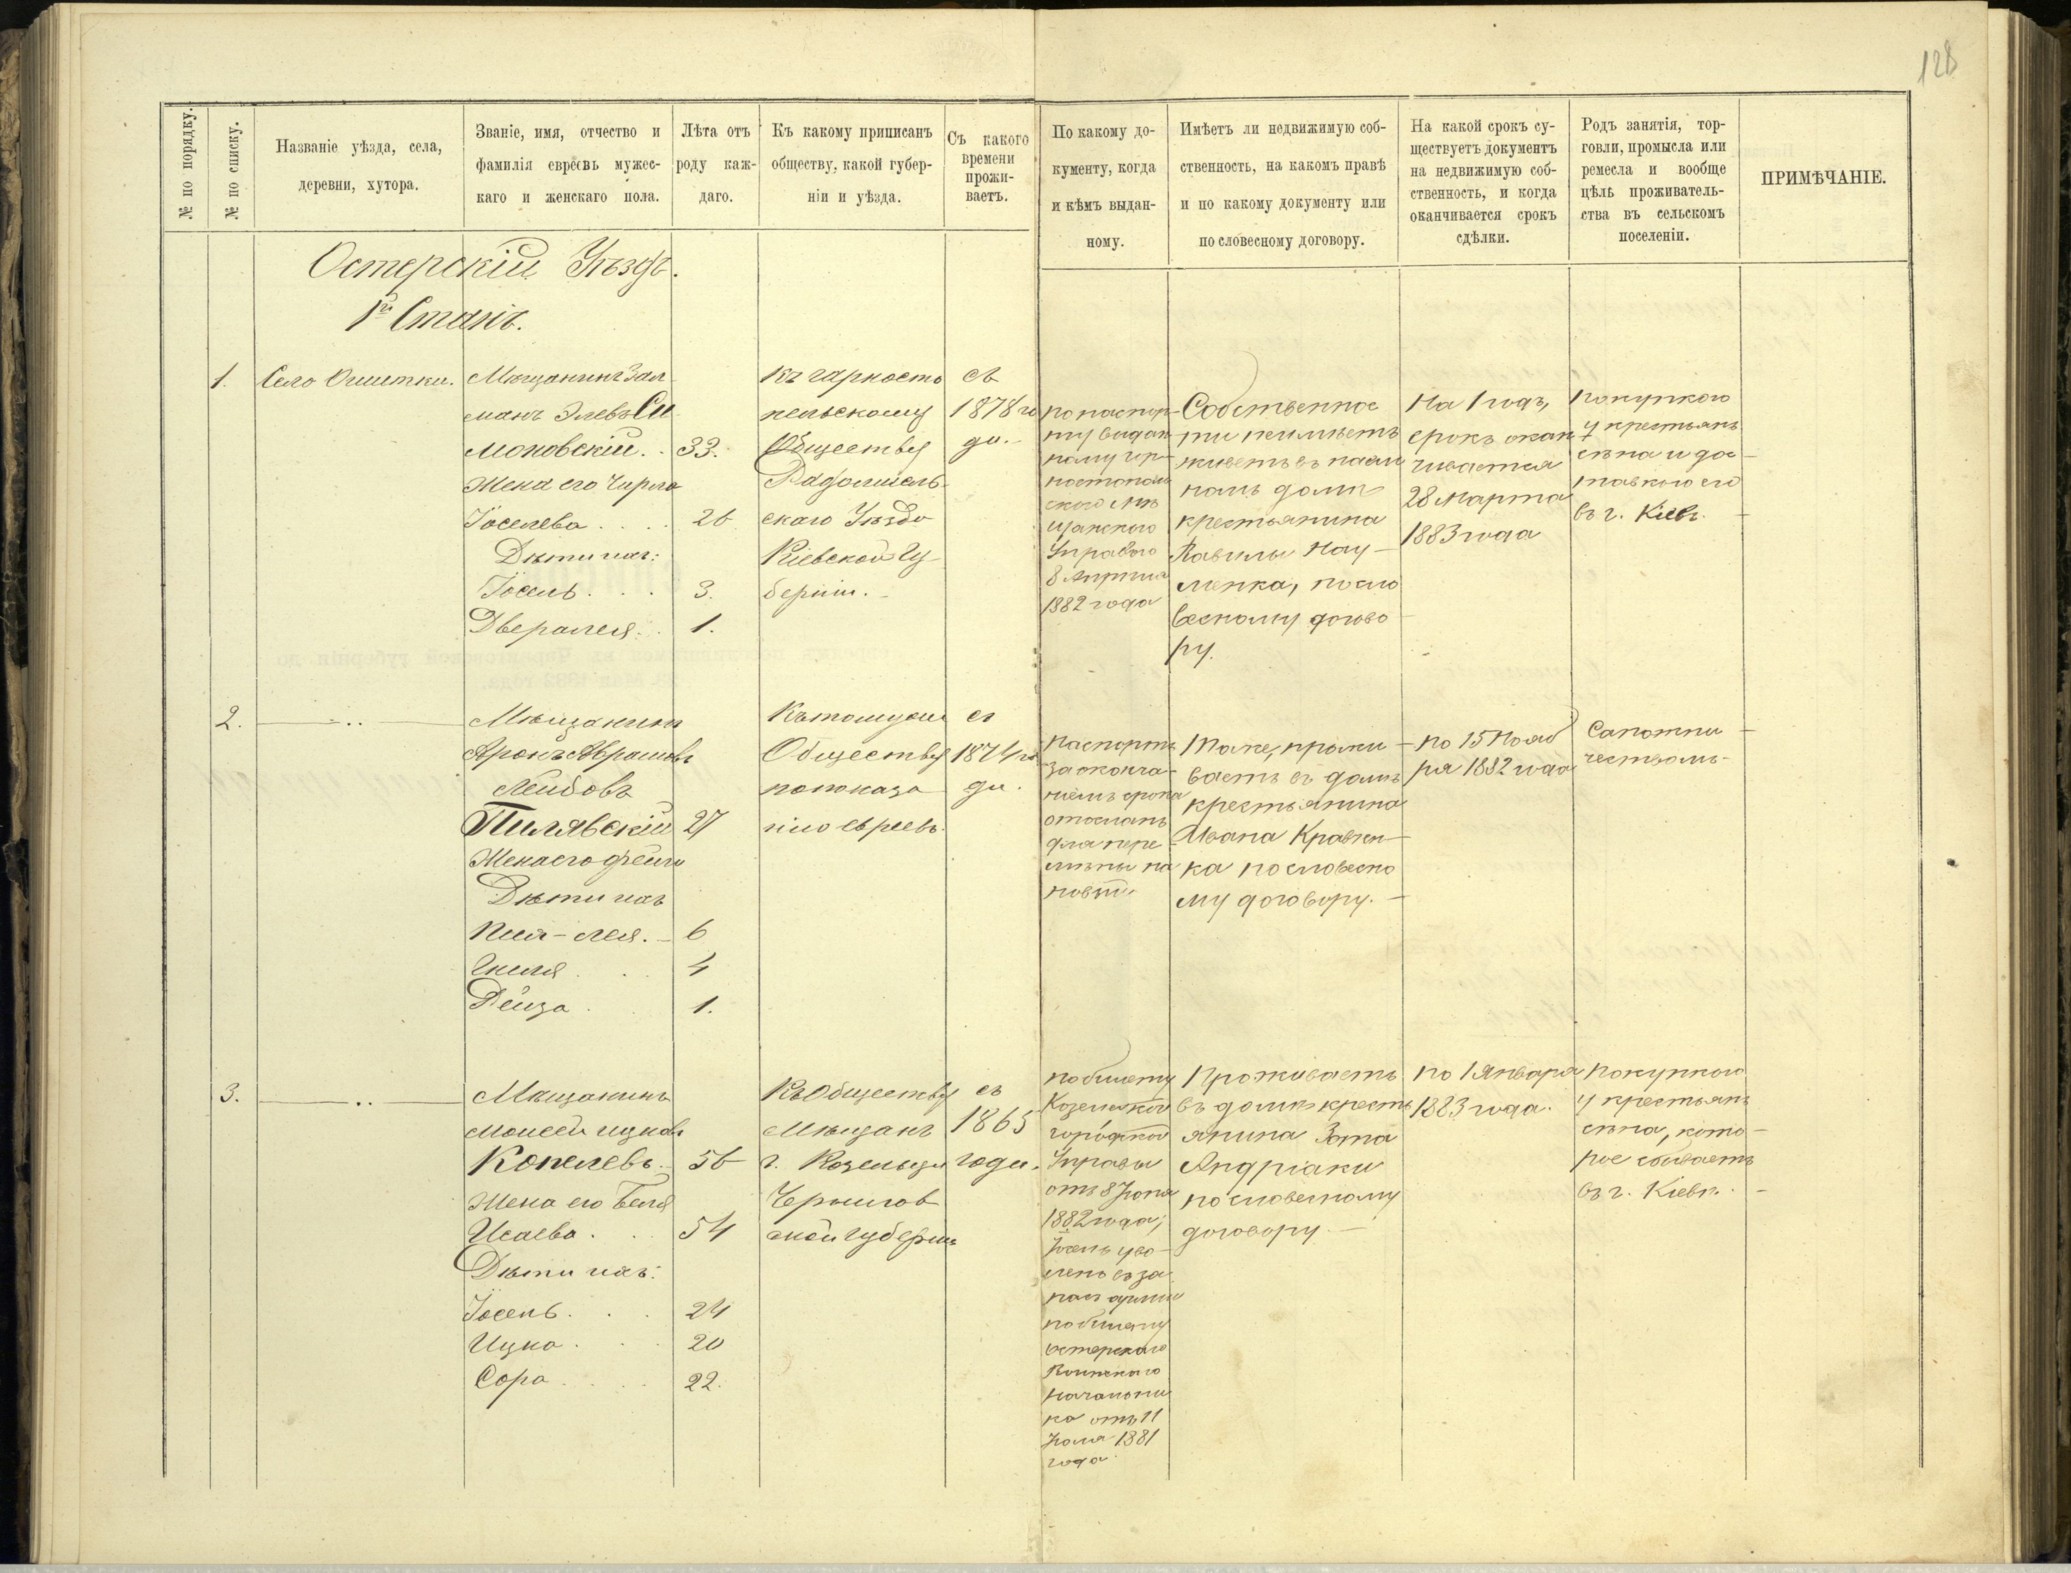 128
№ по порядку.
№ по списку.
Названіе уѣзда, села,
деревни, хутора.
Званіе, имя, отчество и
фамилія евреевъ мужес-
каго и женскаго пола.
Лѣта отъ
роду каж-
даго.
Къ какому приписанъ
обществу, какой губер-
ніи и уѣзда.
Съ какого
времени
прожи-
ваетъ.
По какому до-
кументу, когда
и кѣмъ выдан-
ному.
Имѣетъ ли недвижимую соб-
ственность, на какомъ правѣ
и по какому документу или
по словесному договору.
На какой срокъ су-
ществуетъ документъ
на недвижимую соб-
ственность, и когда
оканчивается срокъ
сдѣлки.
Родъ занятія, тор-
говли, промысла или
ремесла и вообще
цѣль проживатель-
ства въ сельскомъ
поселеніи.
ПРИМѢЧАНІЕ.
Остерскій Уѣздъ.
1й Станъ.
1.
Село
Мѣщанинъ Зал
манъ Элевъ Си
моновскій. . 33.
Жена его
Іоселева . . . . 26
Дѣти ихъ:
Іосель . . . 3.
Двералея . . 1.
Къ Чарносто
польскому
Обществу
Радомысль
скаго Уѣзда
Кіевской Гу
берніи. -
съ
1878 го
да. -
по паспор
ту выдан
ному Чер
ностополь
ского Мѣ
щанского
Управою
8 Апрѣля
1882 года
Собственнос
ти неимѣетъ
живетъ въ наем
номъ домѣ
крестьянина
Павилы Нау -
менка, по сло
весному догово
ру.
На 1 годъ,
срокъ окан
чивается
28 Марта
1883 года
Покупкою
у крестьянъ
сѣна и дос -
тавкою его
въ г. Кіевъ. -
2. — . . —
Мѣщанинъ
Аронъ Абрамовъ
Лейбовъ
Пилявскій 27
Жена его Фейга
Дѣти ихъ
Лея. - 6
4
Рейза . 1.
Къ тому же
Обществу
по показа
нію евреевъ.
съ
1874 го
да.
Паспортъ
за оконча-
ніемъ срока
отосланъ
для пере
мѣны на
новый
Тоже, прожи -
ваетъ въ домѣ
крестьянина
Ивана Кравчен
ка по словесно
му договору. -
по 15 Нояб
ря 1882 года
Сапожни -
чествомъ -
3. — . . —
Мѣщанинъ
Моисей Ицковъ
Копелевъ. 56
Жена его Бейля
Исаева . . . 54
Дѣти ихъ:
Іосель . . . 24
Ицка . . . 20
Сора . . . . 22.
Къ Обществу
Мѣщанъ
г. Козельца
Чернигов
ской Губерніи
съ
1865
года.
по билету
Козелецкой
городской
Управы
отъ 8 Іюня
1882 года;
Іосель уво -
ленъ въ за
пасъ арміи
по билету
Остерскаго
Воинскаго
Начальни
ка отъ 11
Іюля 1881
года
Проживаетъ
въ домѣ кресть
янина Зота
Андріаки
по словесному
договору -
по 1 Января
1883 года.
Покупкою
у крестьянъ
сѣна, кото -
рое сбываетъ
въ г. Кіевъ. -